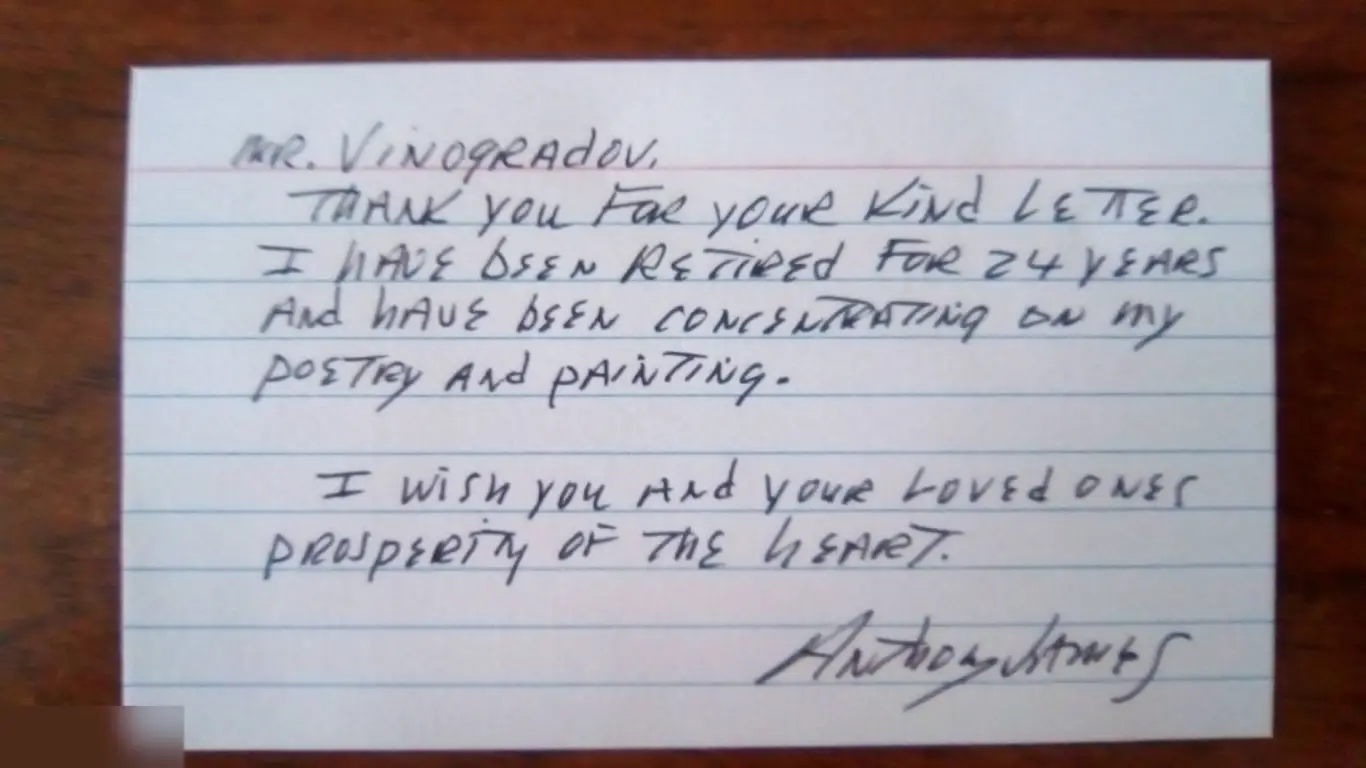 Mr. Vinogradov,
Thank you for your kind letter.
I have been retired for 24 years
and have been concentrating on my
poetry and painting.
I wish you and your loved ones
prosperity of the heart.
Anthony James